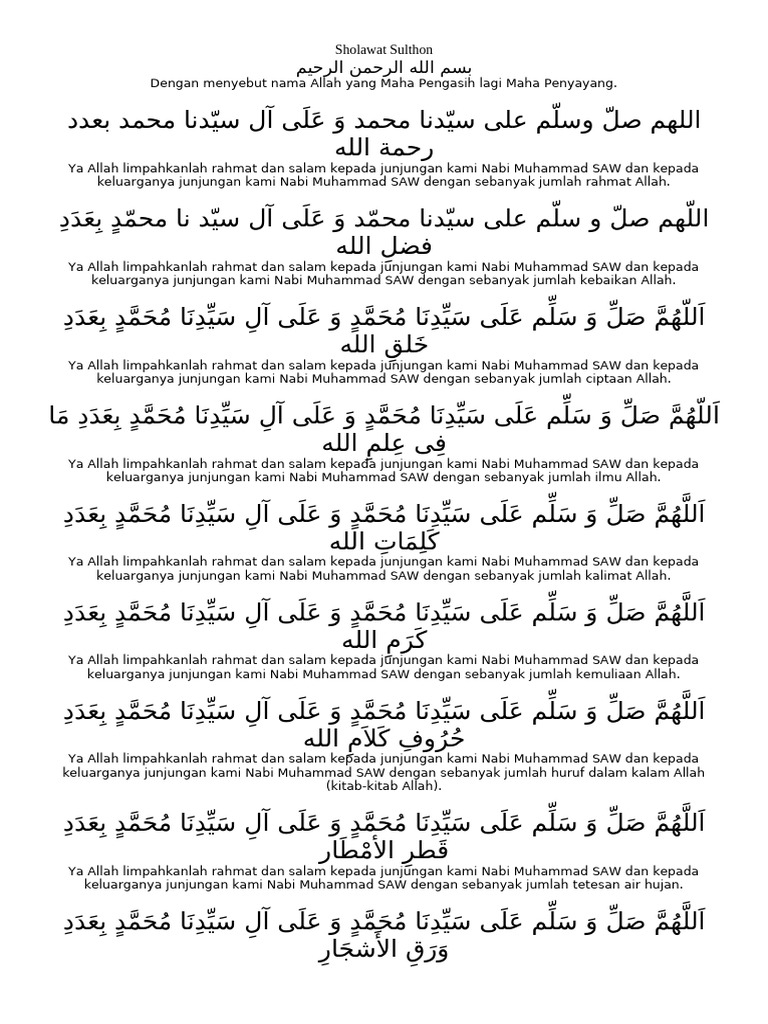 Sholawat Sulthon
بسم الله الرحمن الرحيم
Dengan menyebut nama Allah yang Maha Pengasih lagi Maha Penyayang.
اللهم صلّ وسلّم على سيّدنا محمد وَ عَلَى آل سيّدنا محمد بعدد
رحمة الله
Ya Allah limpahkanlah rahmat dan salam kepada junjungan kami Nabi Muhammad SAW dan kepada
keluarganya junjungan kami Nabi Muhammad SAW dengan sebanyak jumlah rahmat Allah.
اللّهم صلّ و سلّم على سيّدنا محمّد وَ عَلَى آل سيّد نا محمّدٍ بِعَدَدِ
فضلِ الله
Ya Allah limpahkanlah rahmat dan salam kepada junjungan kami Nabi Muhammad SAW dan kepada
keluarganya junjungan kami Nabi Muhammad SAW dengan sebanyak jumlah kebaikan Allah.
اَللّهُمَّ صَلِّ وَ سَلِّم عَلَى سَيِّدِنَا مُحَمَّدٍ وَ عَلَى آلِ سَيِّدِنَا مُحَمَّدٍ بِعَدَدِ
خَلقِ الله
Ya Allah limpahkanlah rahmat dan salam kepada junjungan kami Nabi Muhammad SAW dan kepada
keluarganya junjungan kami Nabi Muhammad SAW dengan sebanyak jumlah ciptaan Allah.
اَللّهُمَّ صَلِّ وَ سَلِّم عَلَى سَيِّدِنَا مُحَمَّدٍ وَ عَلَى آلِ سَيِّدِنَا مُحَمَّدٍ بِعَدَدِ مَا
فِى عِلمِ الله
Ya Allah limpahkanlah rahmat dan salam kepada junjungan kami Nabi Muhammad SAW dan kepada
keluarganya junjungan kami Nabi Muhammad SAW dengan sebanyak jumlah ilmu Allah.
اَللَّهُمَّ صَلِّ وَ سَلِّم عَلَى سَيِّدِنَا مُحَمَّدٍ وَ عَلَى آلِ سَيِّدِنَا مُحَمَّدٍ بِعَدَدِ
كَلِمَاتِ الله
Ya Allah limpahkanlah rahmat dan salam kepada junjungan kami Nabi Muhammad SAW dan kepada
keluarganya junjungan kami Nabi Muhammad SAW dengan sebanyak jumlah kalimat Allah.
اَللَّهُمَّ صَلِّ وَ سَلِّم عَلَى سَيِّدِنَا مُحَمَّدٍ وَ عَلَى آلِ سَيِّدِنَا مُحَمَّدٍ بِعَدَدِ
كَرَمِ الله
Ya Allah limpahkanlah rahmat dan salam kepada junjungan kami Nabi Muhammad SAW dan kepada
keluarganya junjungan kami Nabi Muhammad SAW dengan sebanyak jumlah kemuliaan Allah.
اَللَّهُمَّ صَلِّ وَ سَلِّم عَلَى سَيِّدِنَا مُحَمَّدٍ وَ عَلَى آلِ سَيِّدِنَا مُحَمَّدٍ بِعَدَدِ
حُرُوفِ كَلاَمِ الله
Ya Allah limpahkanlah rahmat dan salam kepada junjungan kami Nabi Muhammad SAW dan kepada
keluarganya junjungan kami Nabi Muhammad SAW dengan sebanyak jumlah huruf dalam kalam Allah
(kitab-kitab Allah).
اَللَّهُمَّ صَلِّ وَ سَلِّم عَلَى سَيِّدِنَا مُحَمَّدٍ وَ عَلَى آلِ سَيِّدِنَا مُحَمَّدٍ بِعَدَدِ
قَطرِ الأمْطَار
Ya Allah limpahkanlah rahmat dan salam kepada junjungan kami Nabi Muhammad SAW dan kepada
keluarganya junjungan kami Nabi Muhammad SAW dengan sebanyak jumlah tetesan air hujan.
اَللَّهُمَّ صَلِّ وَ سَلِّم عَلَى سَيِّدِنَا مُحَمَّدٍ وَ عَلَى آلِ سَيِّدِنَا مُحَمَّدٍ بِعَدَدِ
وَرَقِ الأَشجَارِ